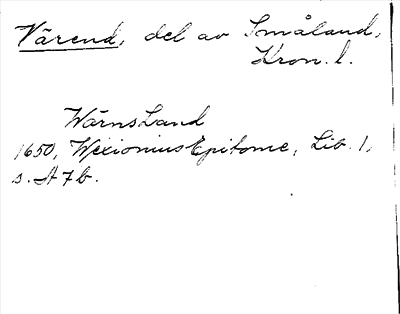 Värend, del av Småland,
Kron. l.
Wärns Land
1650, Wexionius Epitome, Lib. 1,
s. A 7 b.